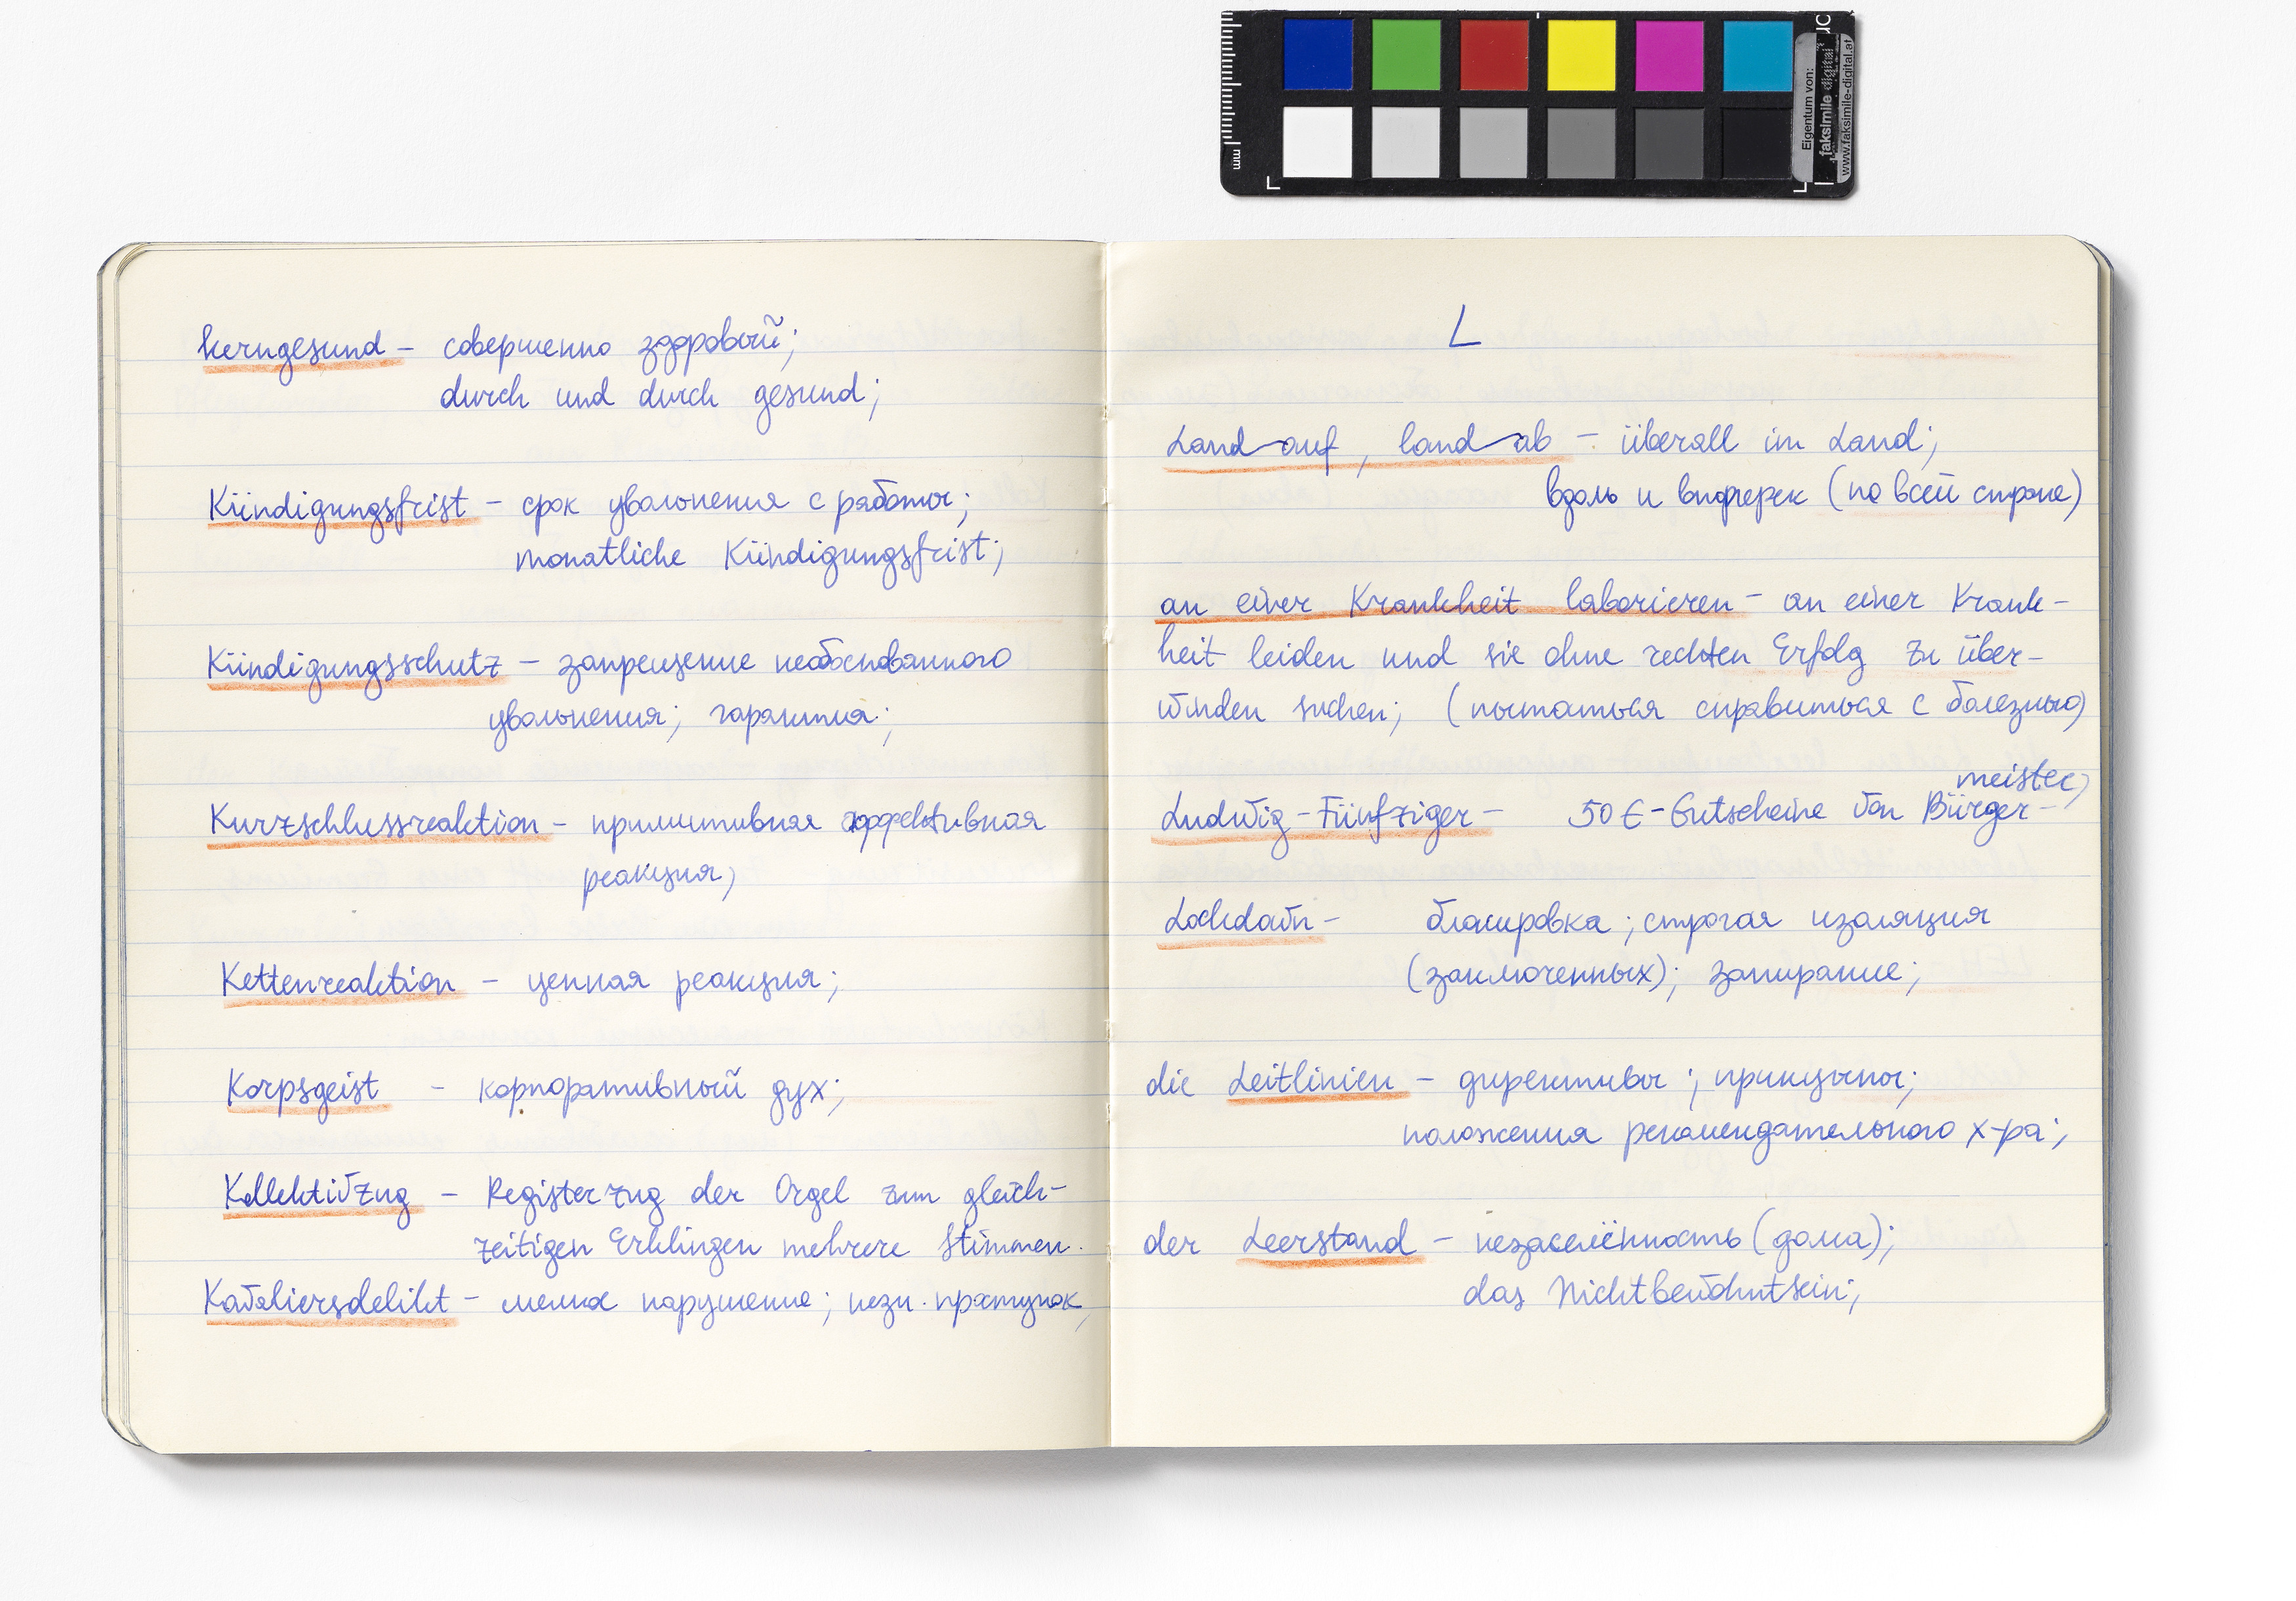 kerngesund – совершенно здоровый;
durch und durch gesund;
Kündigungsfrist – срок увольнения с работы;
monatliche Kündigungsfrist;
Kündigungsschutz – запрещение необоснованного
увольнения; гарантия;
Kurzschlussreaktion – примитивная аффективная
реакция;
Kettenreaktion – цепная реакция;
Korpsgeist – корпоративный дух;
Kollektivzug – Registerzug der Orgel zum gleich-
zeitigen Erklingen mehrere Stimmen.
Kavaliersdelikt – мелкое нарушение; незн. проступок;
L
Land auf, land ab – überall im Land;
вдоль и поперек (по всей стране)
an einer Krankheit laborieren – an einer Krank-
heit leiden und sie ohne rechten Erfolg zu über-
winden suchen; (пытаться справиться с болезнью)
Ludwig-Fünfziger – 50 €-Gutscheine von Bürger-
meister;
Lockdown – блокировка; строгая изоляция
(заключенных); запирание;
die Leitlinien – директивы; принципы;
положения рекомендательного х-ра;
der Leerstand – незаселённость (дома);
das Nichtbewohntsein;
mm
Eigentum von:
faksimile digital
www.faksimile-digital.at